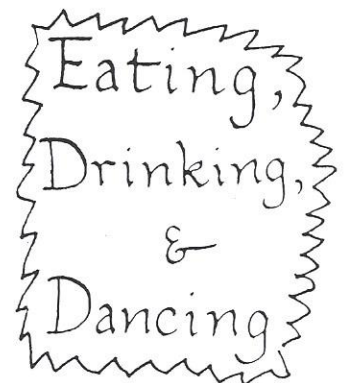 Eating,
Drinking,
&
Dancing